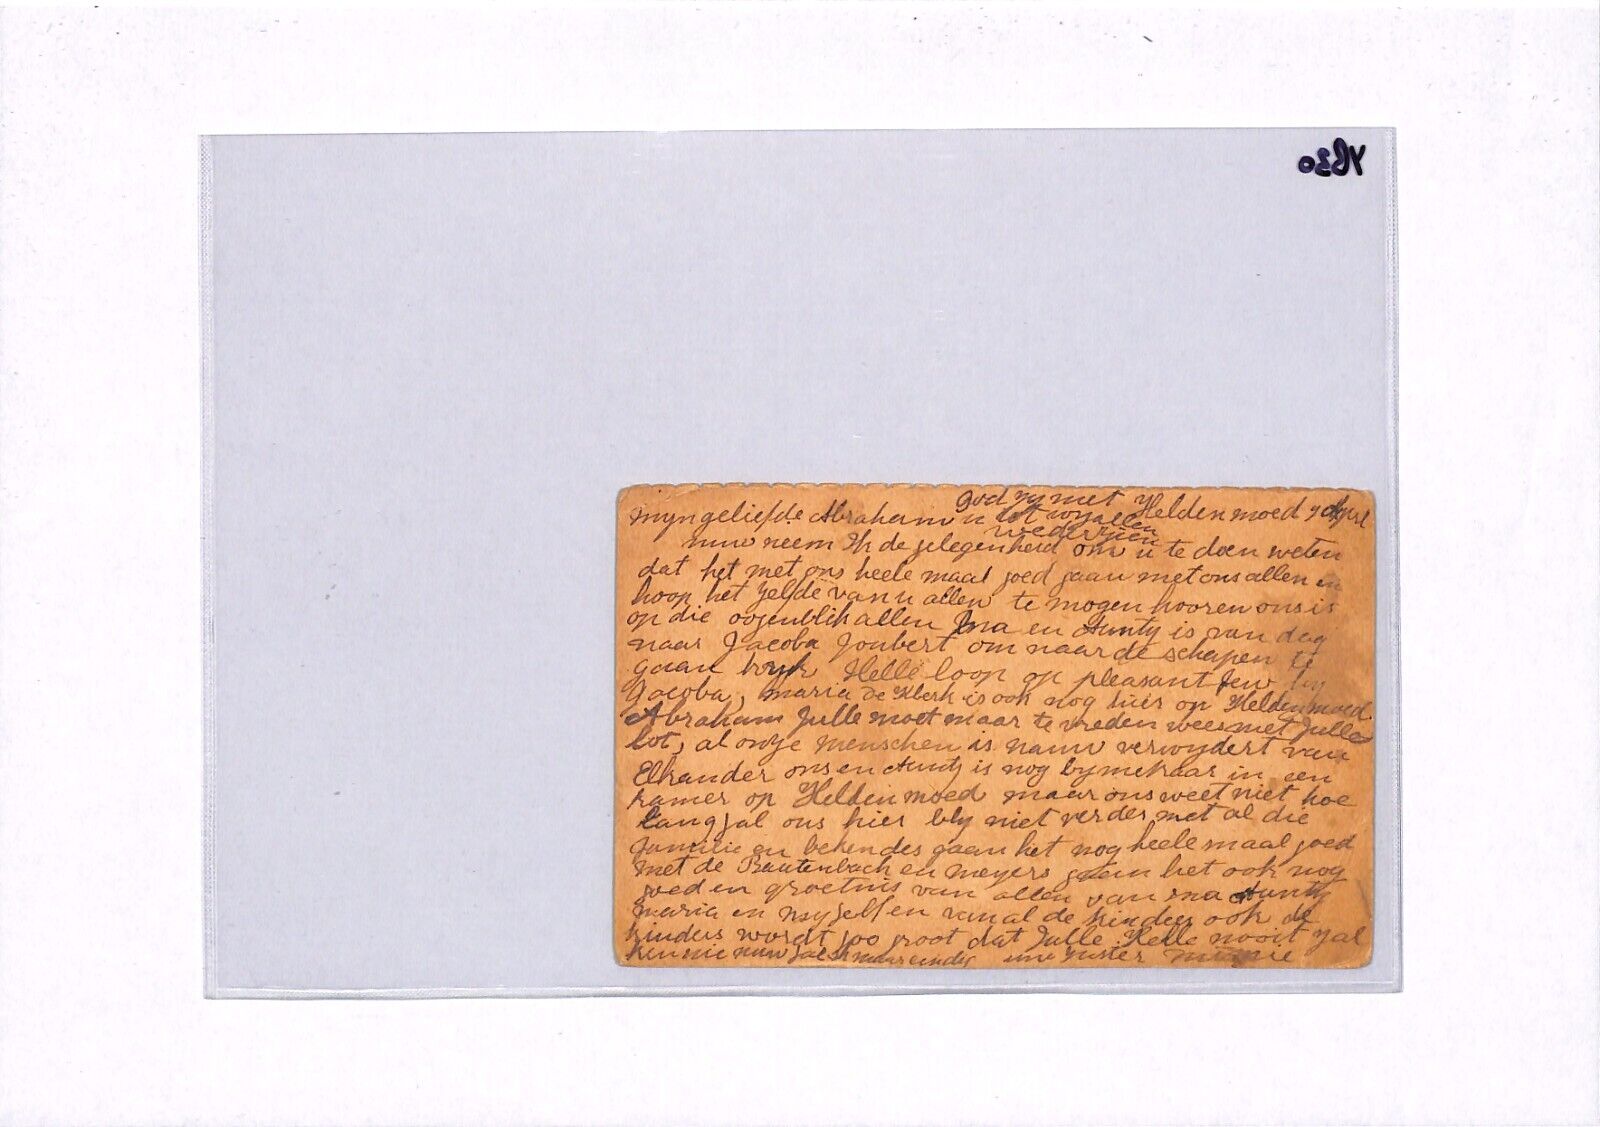 YB30
God zy met
u tot wy allen
wederzien
Heldenmoed 9 April
Myn geliefde Abraham
nuw neem Ik de gelegenheid om u te doen weten
dat het met ons heele maal goed gaan met ons allen en
hoop het zelfde van u allen te mogen hooren ons is
op die oogenblik allen Ina en Aunty is van dag
naar Jacoba Joubert om naar de schapen te
gaan kyk Helle loop op pleasant
Jacoba, maria de Klerk is ook nog hier op Heldenmoed
Abraham Julle moet maar te vreden wees met Julle
lot, al onze menschen is nauw verwydert van
Elkander ons en Aunty is nog bymekaar in een
kamer op Heldenmoed maar ons weet niet hoe
lang zal ons hier bly niet verder met al die
familie en bekendes gaan het nog heele maal goed
met de Bautenbach en meyers gaan het ook nog
goed en groetnis van allen van Ina Aunty
maria en my zelf en van al de kinders ook de
kinders wordt zoo groot dat Julle Helle nooit zal
ken nie nuw zal ik maar eindig uwe zuster